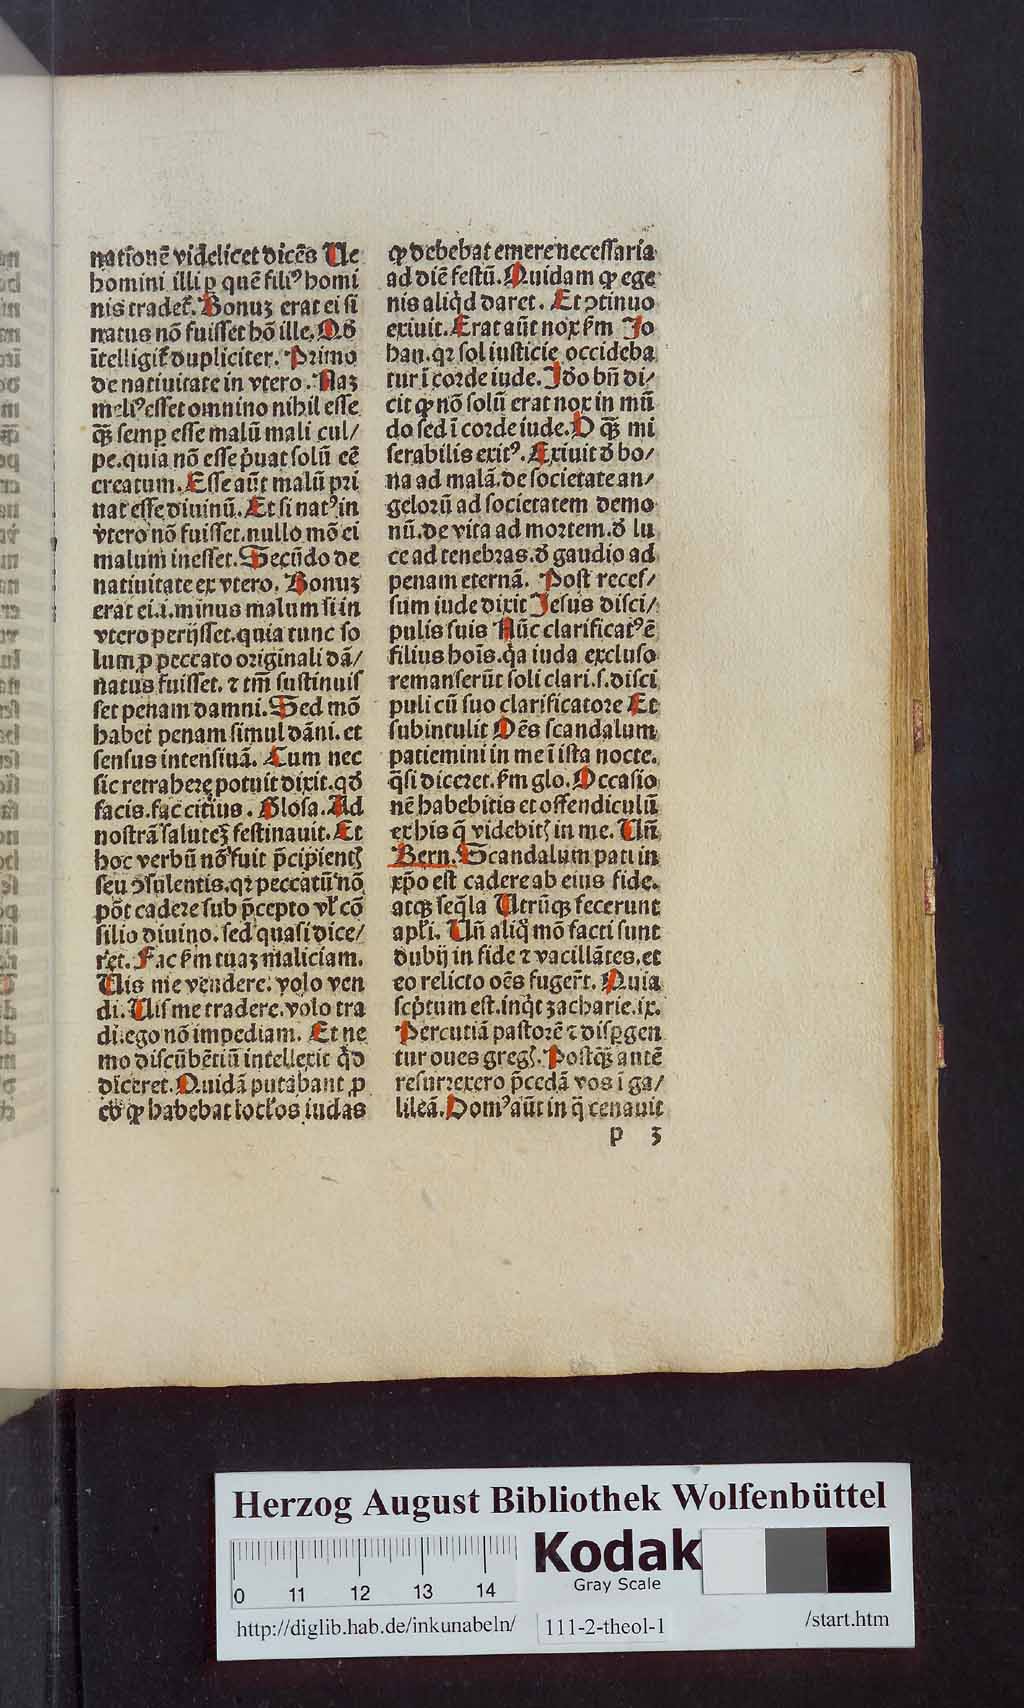 nationē videlicet dicēs Ue
homini illi ꝑ quē filiꝰ homi
nis tradet᷑. Bonuꝫ erat ei si
natus nō fuisset hō ille. Qď
ītelligit᷑ dupliciter. Primo
de natiuitate in vtero. Naꝫ
meliꝰ esset omnino nihil esse
qꝫ̄ semꝑ esse malū mali cul/
pe. quia nō esse p̍uat solū eē
creatum. Esse aūt malū pri
uat esse diuinū. Et si natꝰ in
vtero nō fuisset. nullo mō ei
malum inesset. Secūdo de
natiuitate ex vtero. Bonuꝫ
erat ei .i. minus malum si in
vtero perijsset. quia tunc so
lum ꝓ peccato originali dā/
natus fuisset. ⁊ tm̄ sustinuis
set penam damni. Sed mō
habet penam simul dāni. et
sensus intensiuā. Cum nec
sic retrahere potuit dixit. qď
facis. fac citius. Glosa. Ad
nostrā saluteꝫ festinauit. Et
hoc verbū nō fuit p̄cipientꝭ
seu ꝯsulentis. qꝛ peccatū nō
pōt cadere sub p̄cepto vl̓ cō
silio diuino. sed quasi dice/
ret. Fac ẜm tuaꝫ maliciam.
Uis me vendere. volo ven
di. Uis me tradere. volo tra
di. ego nō impediam. Et ne
mo discūbētiū intellexit qď
diceret. Quidā putabant ꝓ
eo ꝙ habebat locl̓os iudas
ꝙ debebat emere necessaria
ad diē festū. Quidam ꝙ ege
nis aliqď daret. Et ꝯtinuo
exiuit. Erat aūt nox ẜm Jo
han. qꝛ sol iusticie occideba
tur ī corde iude. Jďo bn̄ di/
cit ꝙ nō solū erat nox in mū
do sed ī corde iude. O qꝫ̄ mi
serabilis exitꝰ. Exiuit ď bo/
na ad malā. de societate an/
gelorū ad societatem demo
nū. de vita ad mortem. ď lu
ce ad tenebras. ď gaudio ad
penam eternā. Post reces/
sum iude dixit Jesus disci/
pulis suis Nūc clarificatꝰ ē
filius hoīs. qͣa iuda excluso
remanserūt soli clari .s. disci
puli cū suo clarificatore Et
subintulit Oēs scandalum
patiemini in me ī ista nocte.
qͣsi diceret. ẜm glo. Occasio
nē habebitis et offendiculū
ex his q̄ videbitꝭ in me. Un̄
Bern. Scandalum pati in
xp̄o est cadere ab eius fide.
atqꝫ seqͣla Utrūqꝫ fecerunt
apl̓i. Un̄ aliqͦ mō facti sunt
dubij in fide ⁊ vacillātes. et
eo relicto oēs fuger̄t. Quia
scp̍tum est. inqͥt zacharie. ix.
Percutiā pastorē ⁊ disꝑgen
tur oues gregꝭ. Postqꝫ̄ autē
resurrexero p̄cedā vos ī ga/
lileā. Domꝰ aūt in q̄ cenauit
p 3
Herzog August Bibliothek Wolfenbüttel
Kodak
Gray Scale
0 11 12 13 14
http://diglib.hab.de/inkunabeln/ 111-2-theol-1 /start.htm